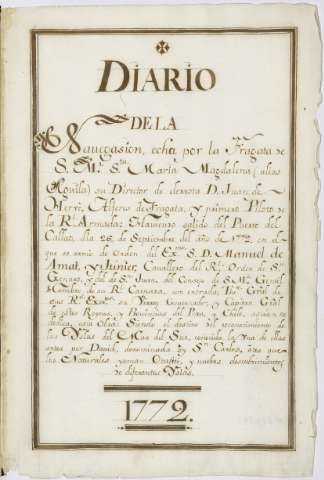 DIARIO
DE LA
Navegasion, echa por la Fragata de
S. M. Sta. María Magdalena, (alias
Aguila) su Director de derrota D. Juan de
Hervé, Alferez de Fragata, y primero Piloto de
la Rl. Armada; Haviendo salido del Puerto del
Callao, dia 26, de Septiembre del año de 1772, en el
que se de Orden del Exo. S. D. Manuel de
Amat, y Junient, Cavallero del Rl. Orden de Sn.
Genaro, y del de Sn. Juan, del Consejo de S. M. Gentil
Hombre de su Rl. Camara, con entrada, Thte. Gral. de
sus Rs. Virrey Governador, y Capitan Gral.
de estos Reynos, y Provincias del Peru, y Chile,
Siendo el destino del reconocimiento de
las Yslas del Mar del Sur, la Una de ellas
antes por David, denominada Sn. Carlos, que
los Naturales llaman Otaheti, y nuebos descubrimientos
de diferentes Yslas.
1772.